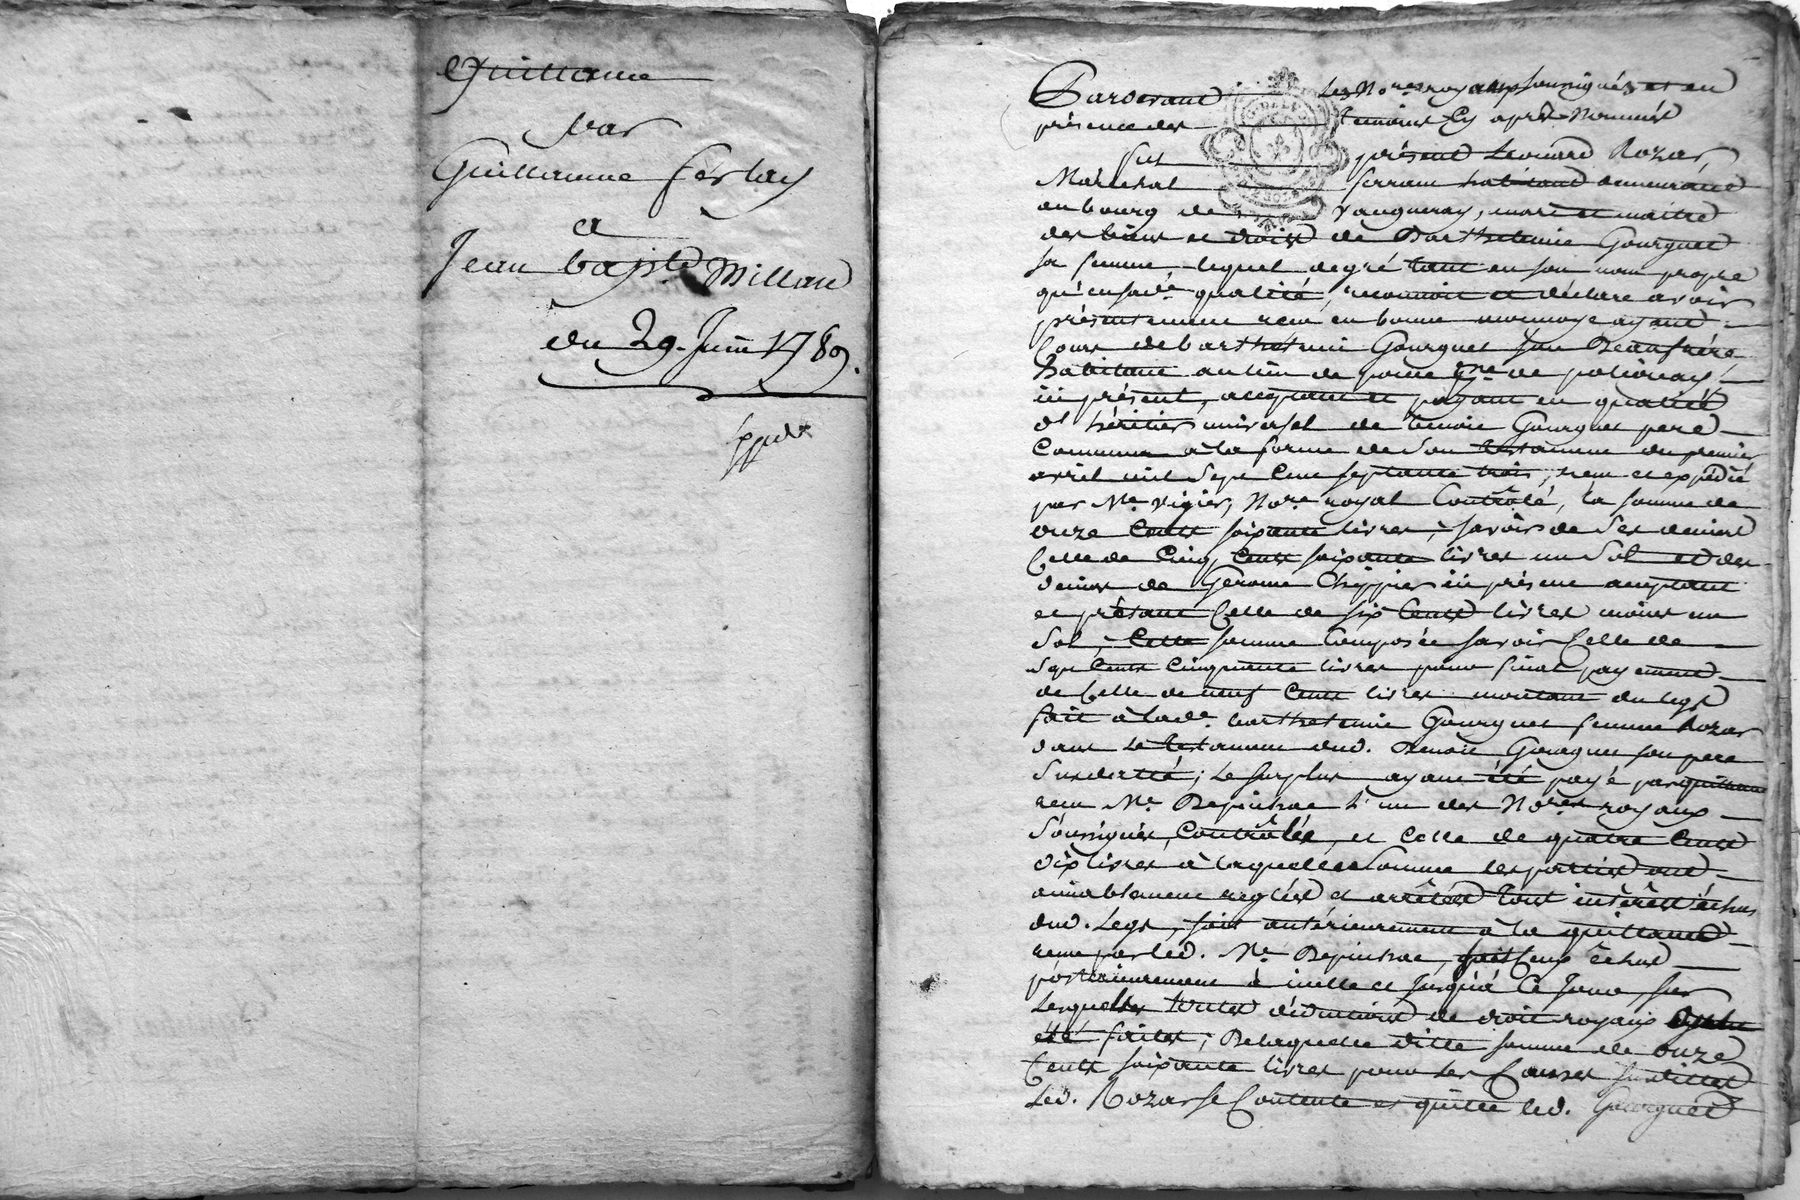 Quittance
par
Guillaume Ferlay
a
Jean bapte Millard
du 29. Juin 1789.
Pardevant Les Nores royaux soussignés et en
présence des temoins Cy après Nommés
fut présent Léonard Rozar
Maréchal ferrant habitant demeurant
au bourg de Vaugneray, mari et maitre
des biens et droits de Barthelemie Gourguet
sa femme lequel de gré tant en son nom propre
qu'en sade. qualité, reconnoit et déclare avoir
présentement reçu en bonne monnoye ayant
Cours de barthelemi Gourguet son Beaufrère
habitant au lieu de poisse de polionay
ici présent, acceptant et payant en qualité
d'héritier universel de benoit Gourguet pere
Commun à la forme de Son testament du premier
avril mil Sept Cent septante trois, reçu et expédié
par Me. vigier, Nore. royal Contrôlé, la somme de
onze Cents soixante livres, savoir de Ses deniers
Celle de Cinq Cents soixante livres un Sol et des
deniers de Gerome Chippier ici présent acceptant
et prêtant Celle de six Cents livres moins un
Sol, Cette somme Composée savoir Celle de
Sept Cents Cinquante livres pour final payement
de Celle de neuf Cents livres montant du legs
fait à lade. barthelemie Gourguet femme Rozar
dans Le testament dud. Benoit Gourguet son pere
Susdatté; Le surplus ayant été payé par quittance
reçue Me. Depinhac l'un des Nores. royaux
Soussignés, Contrôlée, et Celle de quatre Cents
dix livres à laquelle Somme les parties ont
amiablement reglés et arrêtés tout intérêts échus
dud. Legs, soit antérieurement à la quittance
reçue par led. Me. Depinhac, soit Ceux échus
postérieurement à icelle et Jusqu'à Ce Jour sur
Lesquelles toutes déductions de droit royaux
été faites; De laquelle ditte somme de onze
Cents soixante livres pour les Causes Susdittes
Led. Rozar se Contente et quitte led. Gourguet